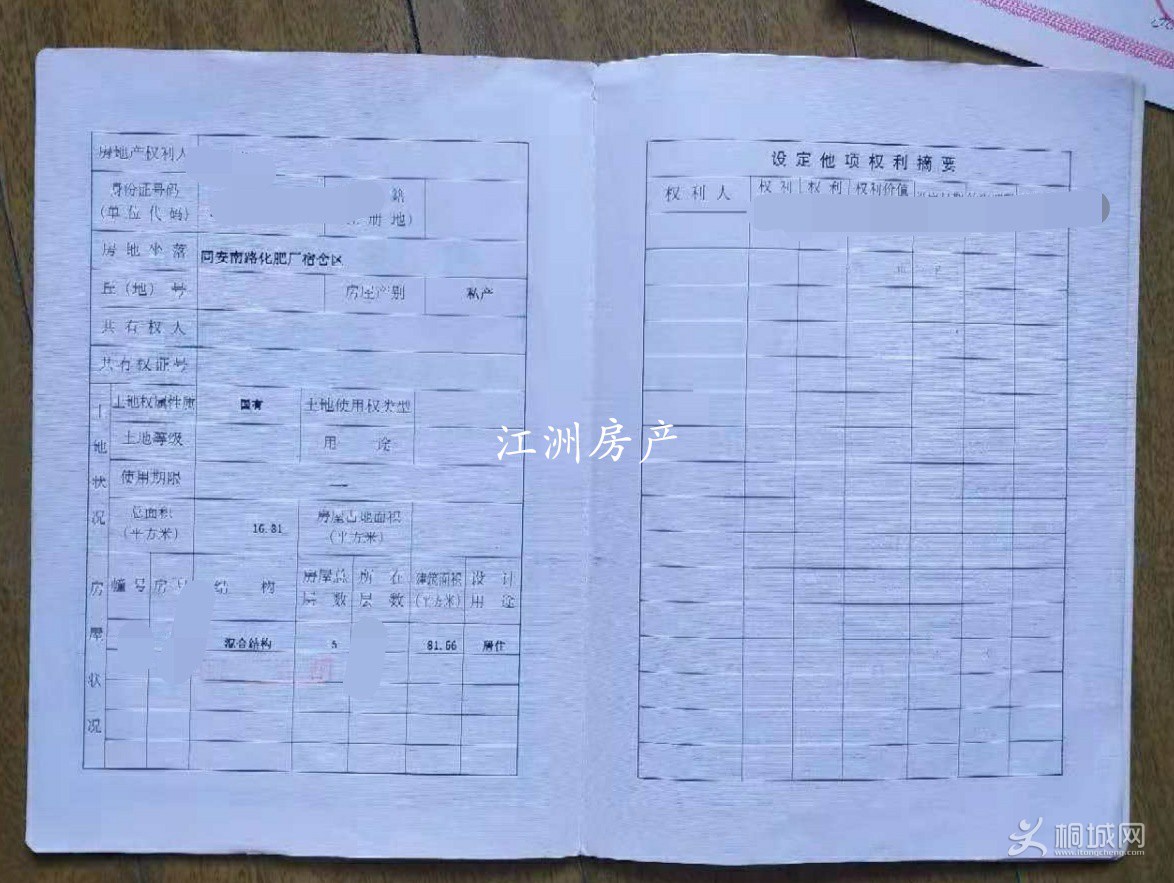 房地产权利人
身份证号码
(单位代码)
籍
册地)
房地坐落 同安南路化肥厂宿舍区
丘(地)号 房屋产别 私产
共有权人
共有权证号
土地状况
土地权属性质 国有 土地使用权类型
土地等级 用途
使用期限 —
总面积
(平方米) 16.31 房屋占地面积
(平方米)
房屋状况
幢号 房号 结构 房屋总层数 所在层数 建筑面积(平方米) 设计用途
混合结构 81.56 居住
设定他项权利摘要
权利人 权利 权利 权利价值
江洲房产
桐城网
www.itongcheng.com